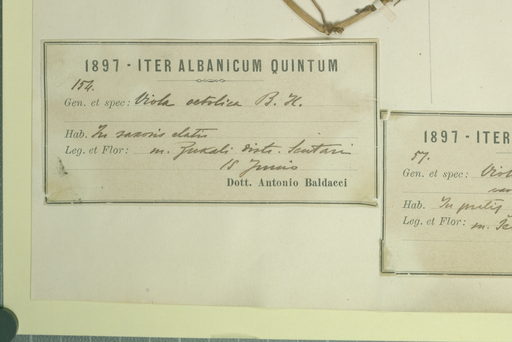 1897 - ITER ALBANICUM QUINTUM
154.
Gen. et spec: Viola aetolica B. H.
Hab. In saxosis elatis
Leg. et Flor: m. Zukali distr. Scutari
18 Junio
Dott. Antonio Baldacci
1897 - ITER
57.
Gen. et spec: Viol
var
Hab. In pratis
Leg. et Flor: m.